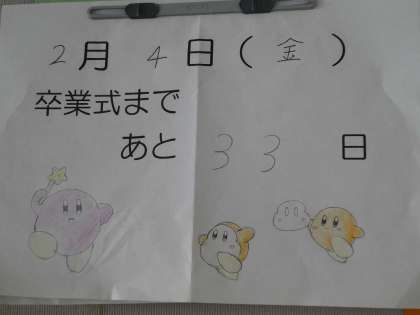 2月4日(金)
卒業式まで
あと33日